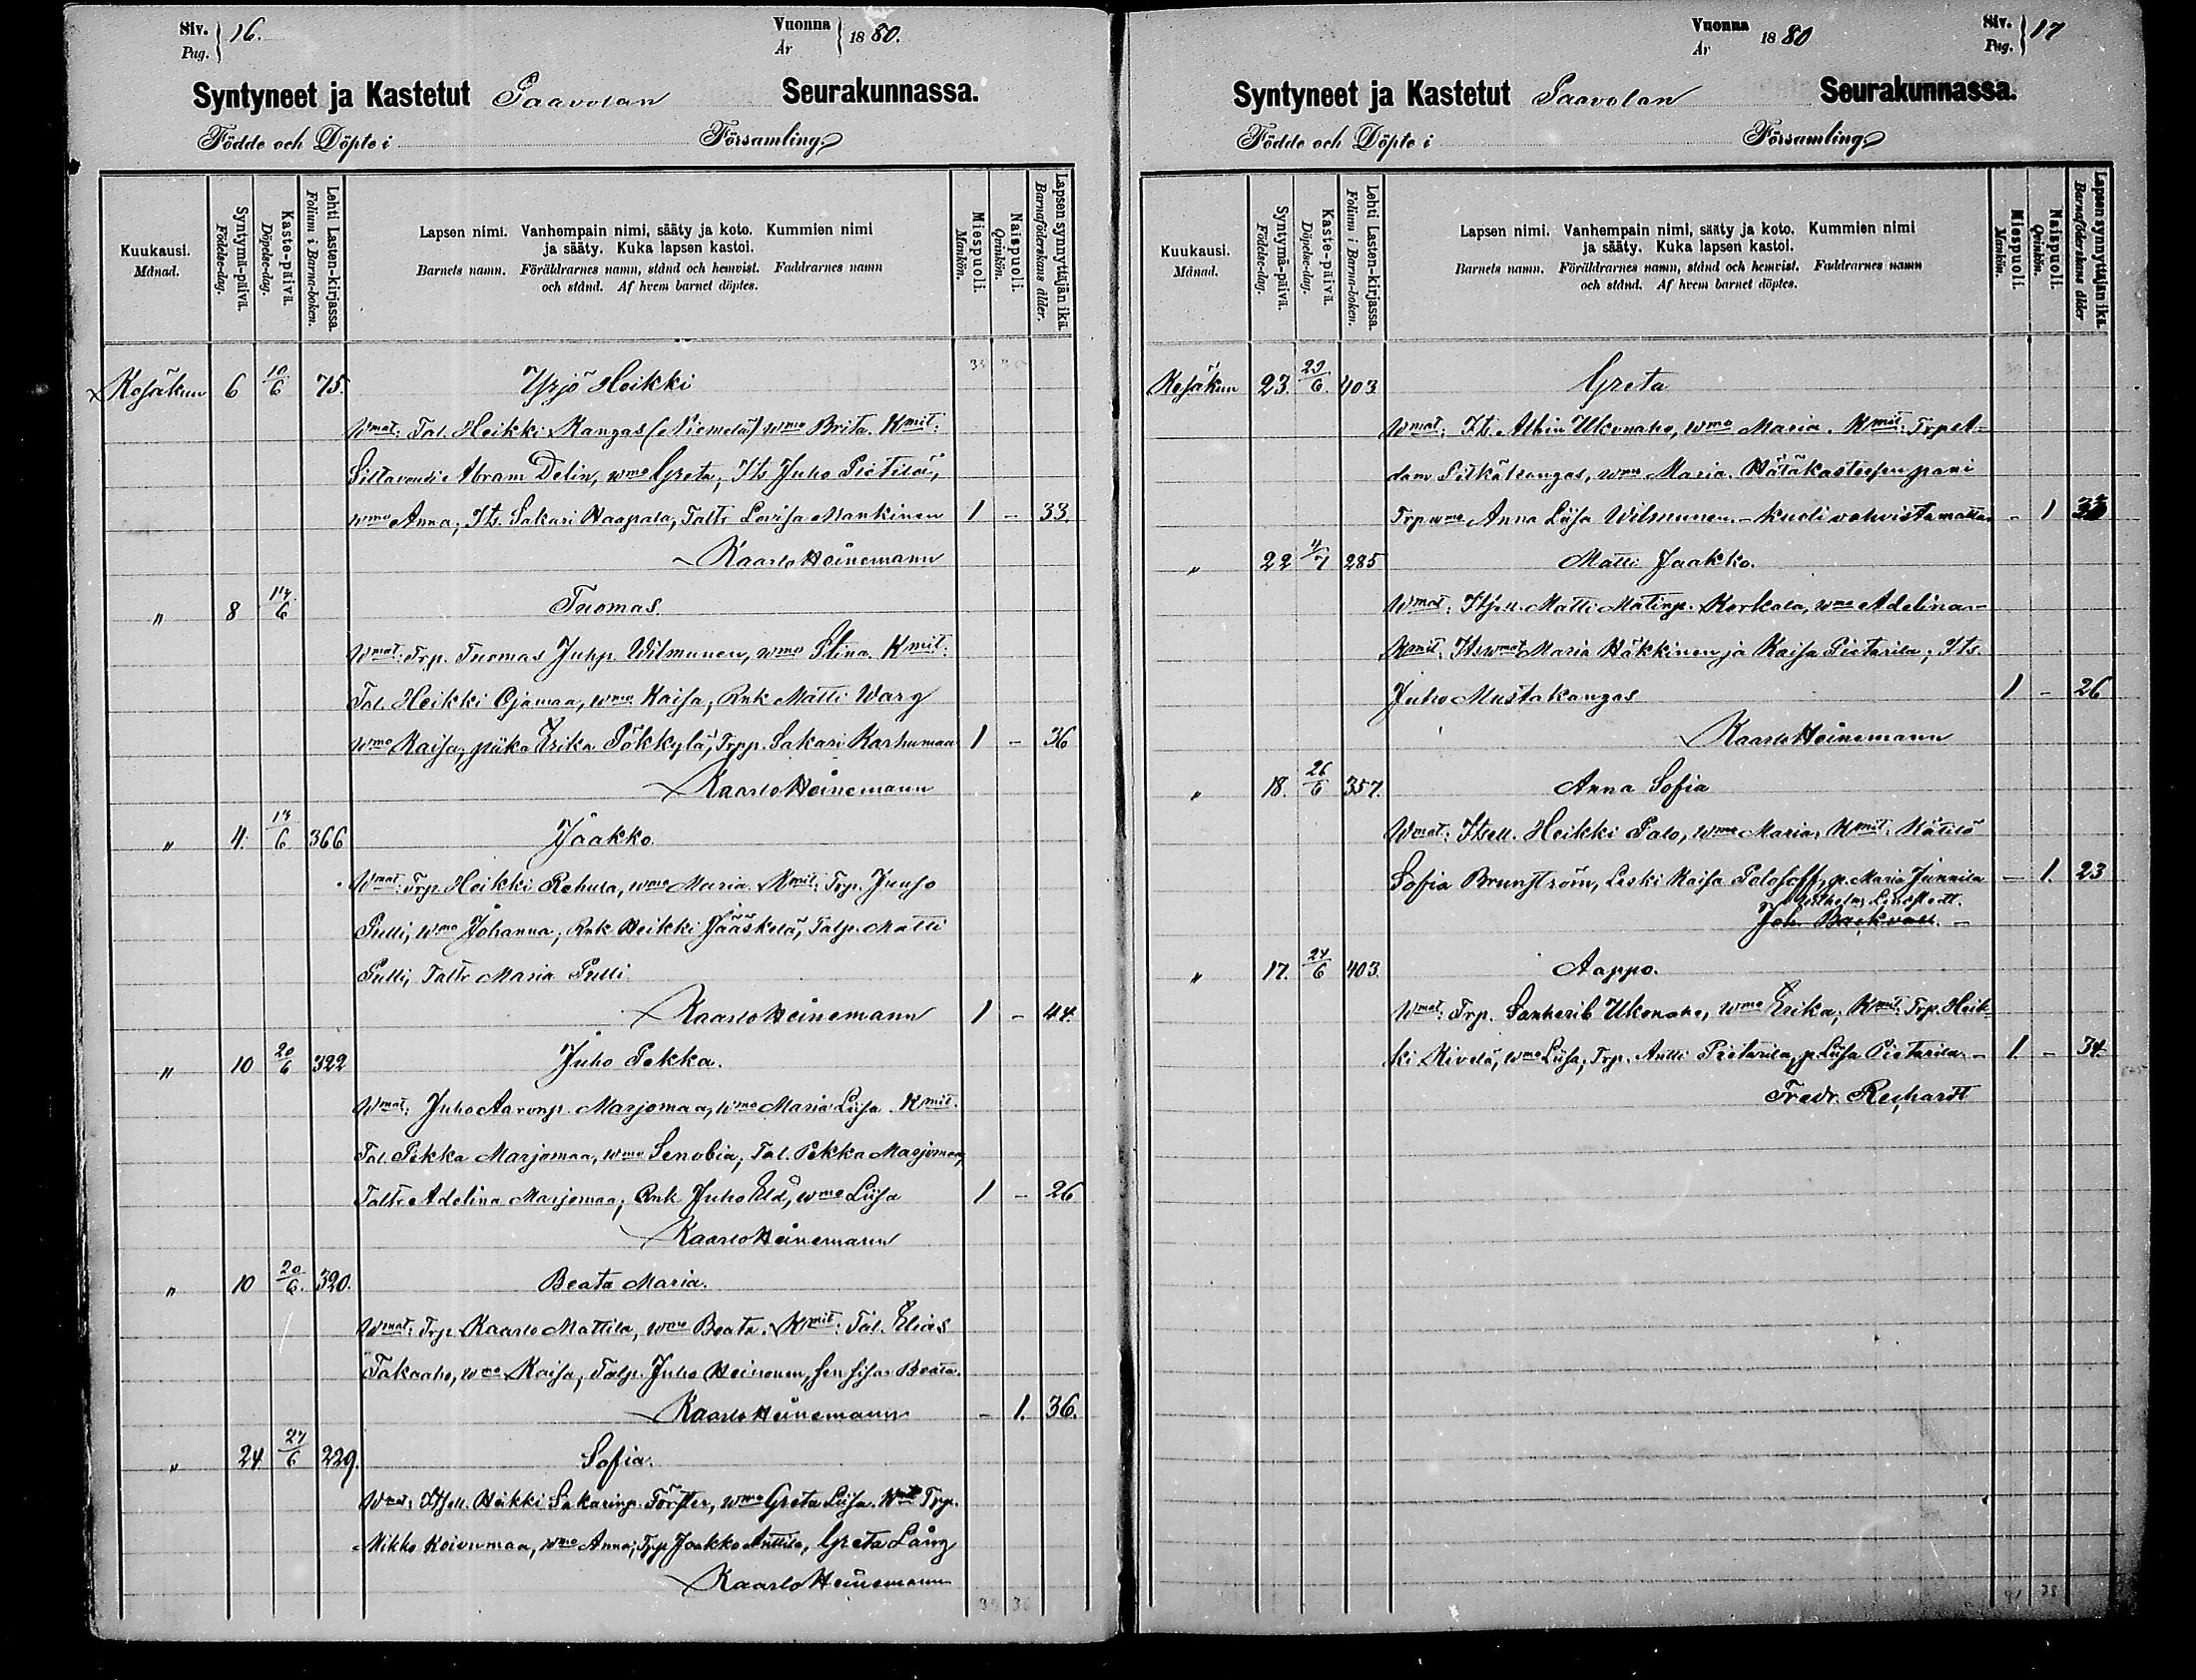 Siv. Pag. 16. Vuonna År 1880.
Syntyneet ja Kastetut Paavolan Seurakunnassa.
Födde och Döpte i Församling.
Kuukausi. Månad.
Syntymä-päivä. Födelse-dag.
Kaste-päivä. Döpelse-dag.
Lehti Lasten-kirjassa. Folium i Barna-boken.
Lapsen nimi. Vanhempain nimi, sääty ja koto. Kummien nimi
ja sääty. Kuka lapsen kastoi.
Barnets namn. Föräldrarnes namn, stånd och hemvist. Faddrarnes namn
och stånd. Af hvem barnet döptes.
Miespuoli. Mankön.
Naispuoli. Qvinkön.
Lapsen synnyttäjän ikä. Barnaföderskans ålder.
Kesäkuu 6 10/6 75. Yrjö Heikki
Wmat: Tal. Heikki Kangas (Niemelä) wmo Brita. Kmit:
Siltavouti Abram Delin, wmo Greta, Its Juho Pietilä,
wmo Anna; Its. Sakari Haapala, Taltr Lovisa Mankinen 1 - 33.
Kaarlo Heinemann
" 8 14/6 Tuomas.
Wmat: Trp. Tuomas Juhp. Wilmunen, wmo Stina. Kmit:
Tal. Heikki Ojamaa, wmo Kaisa, Rnk Matti Warg
wmo Kaisa, piika Erika Pökkylä, Trpp. Sakari Karhumaa 1 - 36
Kaarlo Heinemann
" 4. 14/6 366 Jaakko.
Wmat: Trp. Heikki Rehula, wmo Maria. Kmit: Trp. Juuso
Pulli, wmo Johanna, Rnk Heikki Jääskelä, Talp. Matti
Pulli, Taltr Maria Pulli.
Kaarlo Heinemann 1 - 44.
" 10 20/6 322 Juho Pekka.
Wmat: Juho Aaronp. Marjomaa, wmo Maria Liisa. Kmit.
Tal. Pekka Marjomaa, wmo Senobia, Tal. Pekka Marjomaa,
Taltr Adelina Marjomaa, Rnk Juho Eld, wmo Liisa 1 - 26
Kaarlo Heinemann
" 10 20/6. 320. Beata Maria.
Wmat: Trp. Kaarlo Mattila, wmo Beata. Kmit: Tal. Elias
Takaaho, wmo Kaisa, Talp. Juho Heinonen, sen sisar Beata.
Kaarlo Heinemann - 1. 36.
" 24 27/6 229. Sofia.
Wmat: Itsell. Heikki Sakarinp. Törster, wmo Greta Liisa. Kmit Trp.
Mikko Koivumaa, wmo Anna, Trp. Jaakko Anttila, Greta Lång
Kaarlo Heinemann
Siv. Pag. 17 Vuonna År 1880
Syntyneet ja Kastetut Paavolan Seurakunnassa.
Födde och Döpte i Församling.
Kuukausi. Månad.
Syntymä-päivä. Födelse-dag.
Kaste-päivä. Döpelse-dag.
Lehti Lasten-kirjassa. Folium i Barna-boken.
Lapsen nimi. Vanhempain nimi, sääty ja koto. Kummien nimi
ja sääty. Kuka lapsen kastoi.
Barnets namn. Föräldrarnes namn, stånd och hemvist. Faddrarnes namn
och stånd. Af hvem barnet döptes.
Miespuoli. Mankön.
Naispuoli. Qvinkön.
Lapsen synnyttäjän ikä. Barnaföderskans ålder
Kesäkuu 23. 23/6. 403 Greta
Wmat: It. Albin Ukonaho, wmo Maria. Kmit: Trp A-
dam Pitkäkangas, wmo Maria. Hätäkasteesen pani
Trp wmo Anna Liisa Wilmunen. - kuoli vahvistamatta - 1 33
" 22 4/7 285 Matti Jaakko.
Wmat: Itsell. Matti Matinp. Korkala, wmo Adelina -
Kmit: Its wmot Maria Häkkinen ja Kaisa Pietarila; Its.
Juho Mustakangas 1 - 26
Kaarlo Heinemann
" 18. 26/6 357. Anna Sofia
Wmat: Itsell. Heikki Palo, wmo Maria, Kmit: Kätilö
Sofia Brunström, Leski Kaisa Polosoff, p. Maria Junnila - 1. 23
Wilhelm Lindstedt.
Joh. Backvall. -
" 17. 24/6 403. Aappo.
Wmat: Trp. Sanherib Ukonaho, wmo Erika; Kmit: Trp. Heik-
ki Kivelä, wmo Liisa, Trp. Antti Pietarila, p. Liisa Pietarila - 1. - 34.
Fredr. Reihardt